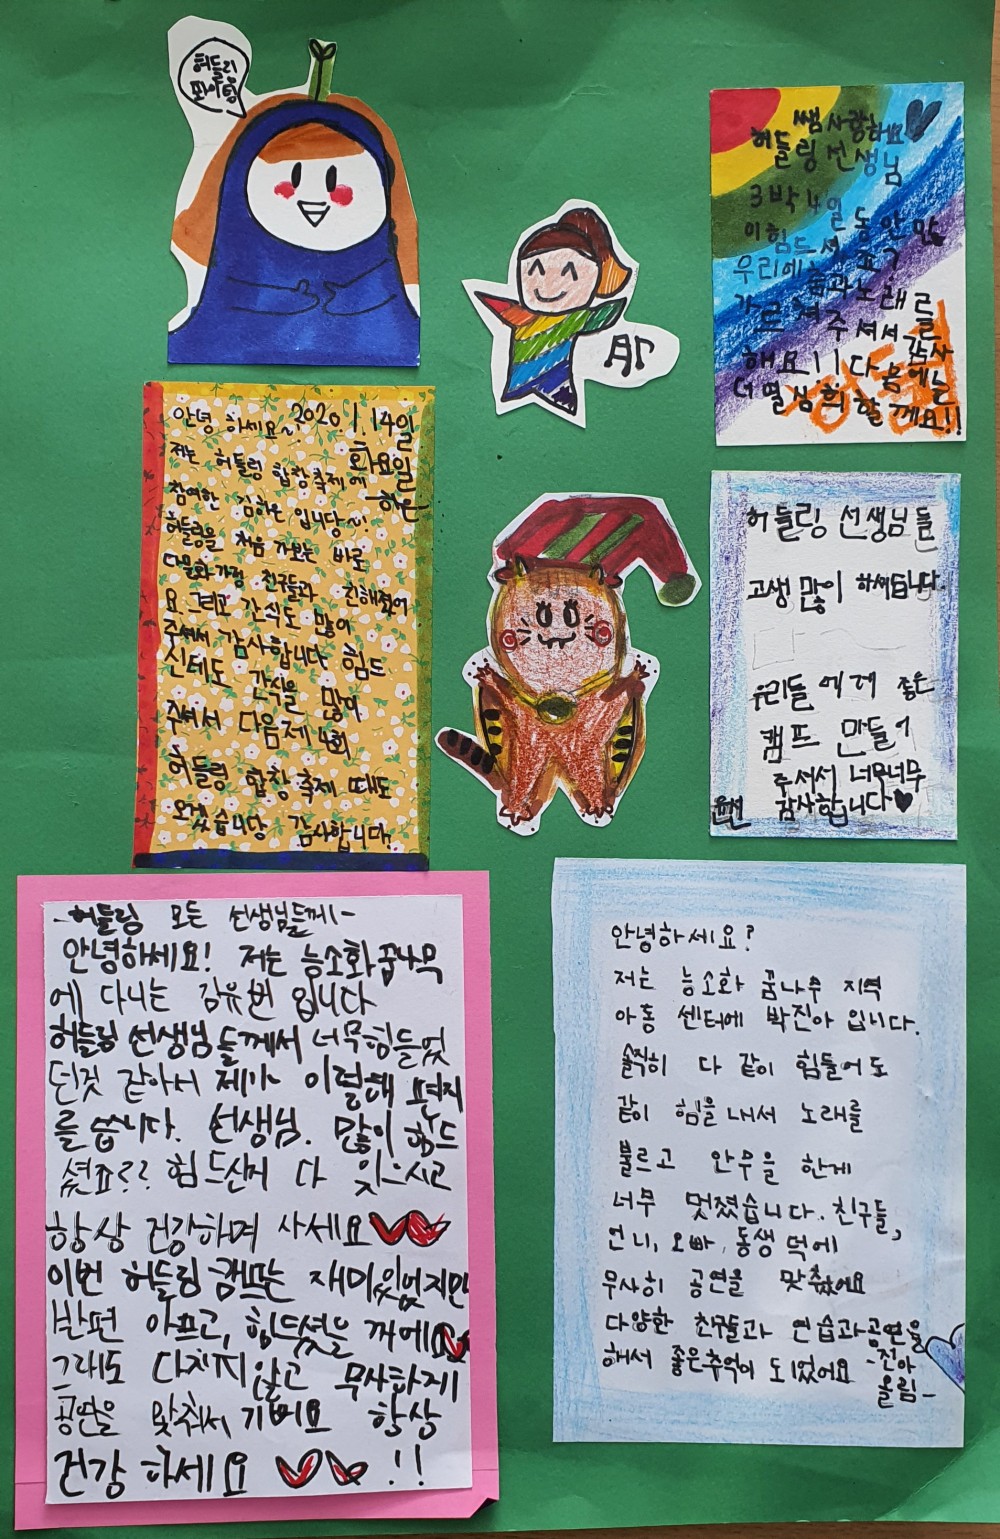 허들링
쌤 사랑해요
허들링 선생님
3박 4일 동안 많
이 힘드셨죠?
우리에 춤과 노래를
가르쳐 주셔서 감사
해요!! 다음에는
더 열심히 할께요!!
안녕 하세요~ 2020. 1. 14일
화요일
-하은-
저는 허들링 합창축제에
참여한 김하은 입니당~!
허들링을 처음 가보는 바로
다문화가정 친구들과 친해졌어
요 그리고 간식도 많이
주셔서 감사합니다 힘드
신데도 간식을 많이
주셔서 다음 제4회
허들링 합창 축제 때도
오겠습니당 감사합니다!
허들링 선생님들
고생 많이 하셔습니다.
우리들에게 좋은
캠프 만들어
주셔서 너무너무
감사합니다♥
-허들링 모든 선생님들께-
안녕하세요! 저는 능소화꿈나무
에 다니는 김유빈 입니다
허들링 선생님들께서 너무힘들었
던것 같아서 제가 이렇해 편지
를 씁니다. 선생님. 많이 힘드
셨죠?? 힘드신거 다 잊으시고
항상 건강하며 사세요
이번 허들링 캠프는 재미있었지만
반면 아프고, 힘드셨을 꺼에
그래도 다치지 않고 무사하게
공연을 맞춰서 기뻐요 항상
건강 하세요 !!
안녕하세요?
저는 능소화 꿈나무 지역
아동 센터에 박진아 입니다.
솔직히 다 같이 힘들어도
같이 힘을 내서 노래를
불르고 안무을 한게
너무 멋졌습니다. 친구들,
언니, 오빠, 동생 덕에
무사히 공연을 맞췄어요
다양한 친구들과 연습과 공연을
해서 좋은추억이 되었어요
-진아
올림-